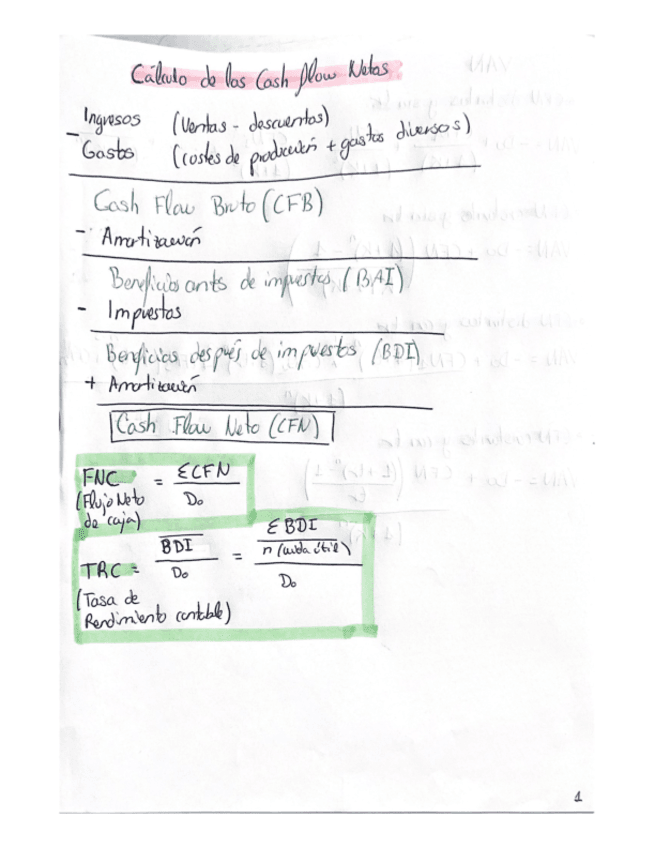 Cálculo de los Cash flow Netos
Ingresos (Ventas - descuentos)
- Gastos (costes de producción + gastos diversos)
Cash Flow Bruto (CFB)
- Amortización
Beneficios ants de impuestos (BAI)
- Impuestos
Beneficios después de impuestos (BDI)
+ Amortización
Cash Flow Neto (CFN)
FNC = ΣCFN / D₀
(Flujo Neto de caja)
TRC = BDI / D₀ = Σ BDI / n (vida útil) / D₀
(Tasa de Rendimiento contable)
1